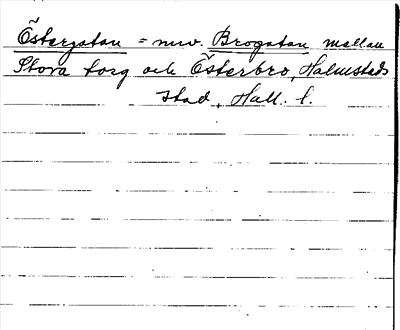 Östergatan = nuv. Brogatan mellan
Stora torg och Österbro, Halmstads
stad, Hall. l.